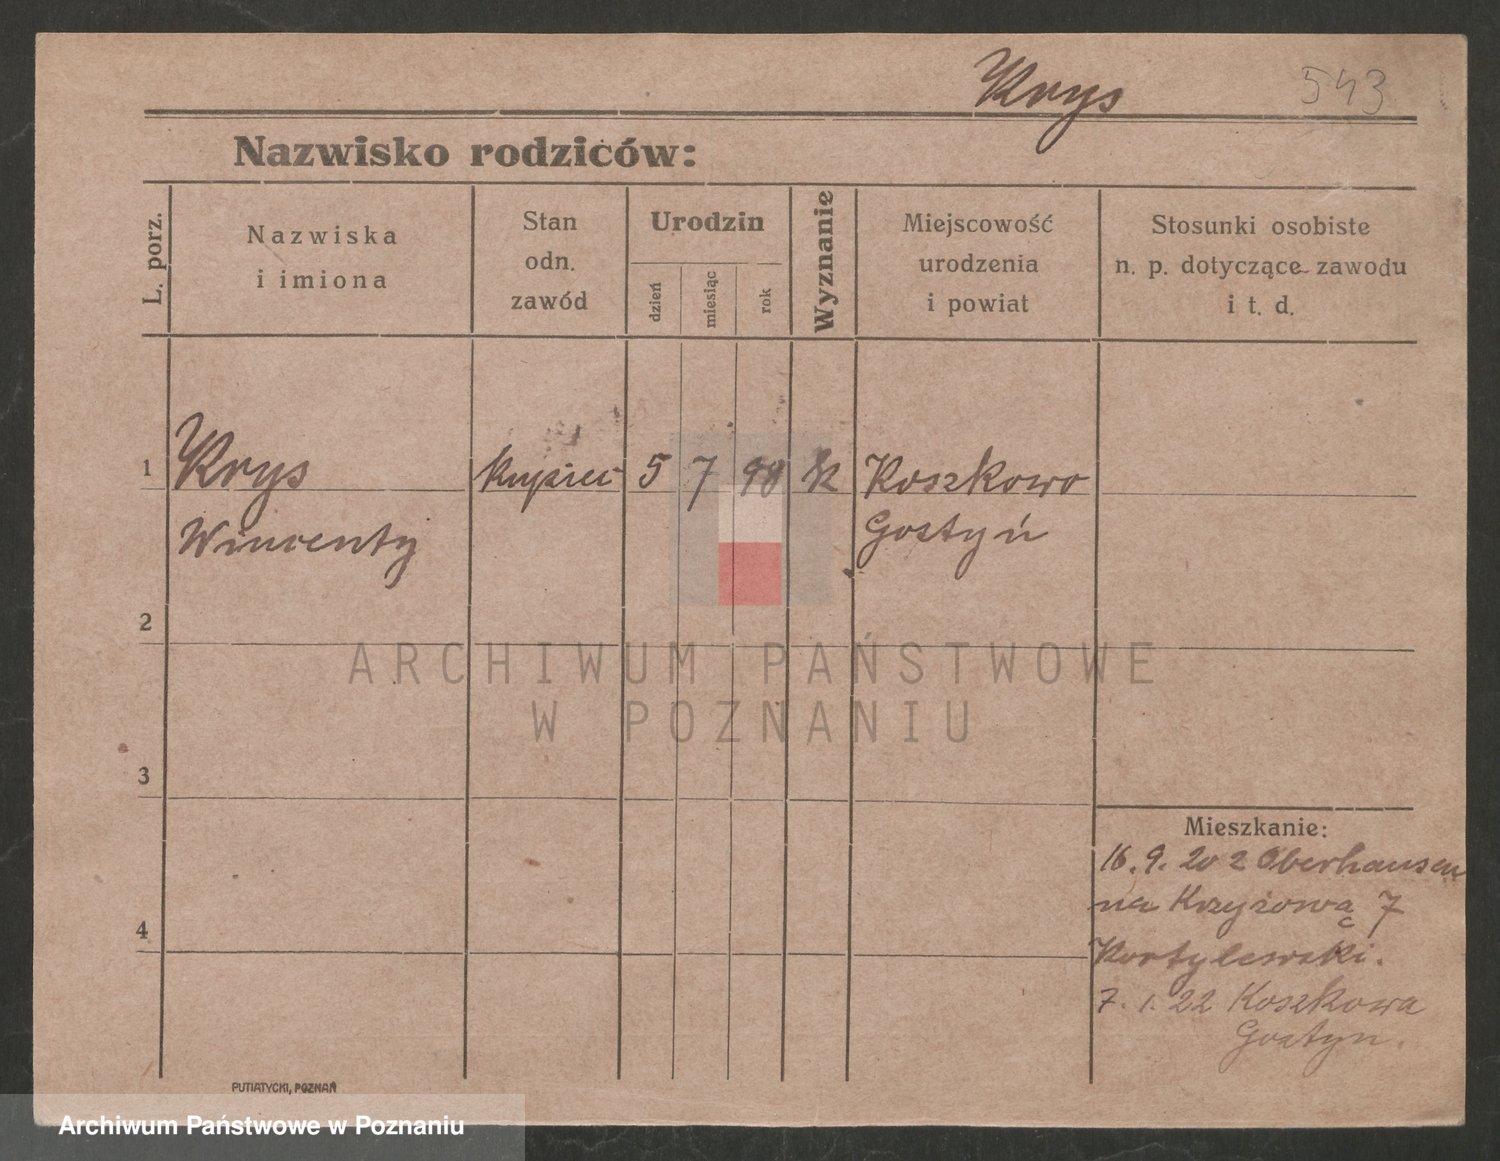 Krys 543
Nazwisko rodziców:
L. porz.
Nazwiska
i imiona
Stan
odn.
zawód
Urodzin
dzień
miesiąc
rok
Wyznanie
Miejscowość
urodzenia
i powiat
Stosunki osobiste
n. p. dotyczące zawodu
i t. d.
1 Krys kupiec 5 7 98 k Koszkowo
Wincenty Gostyń
2
ARCHIWUM PAŃSTWOWE
W POZNANIU
3
Mieszkanie:
16. 9. 20 z Oberhausen
na Krzyżową 7
4
Kortylewski.
7. 1. 22 Koszkowa
Gostyn.
PUTIATYCKI, POZNAŃ
Archiwum Państwowe w Poznaniu